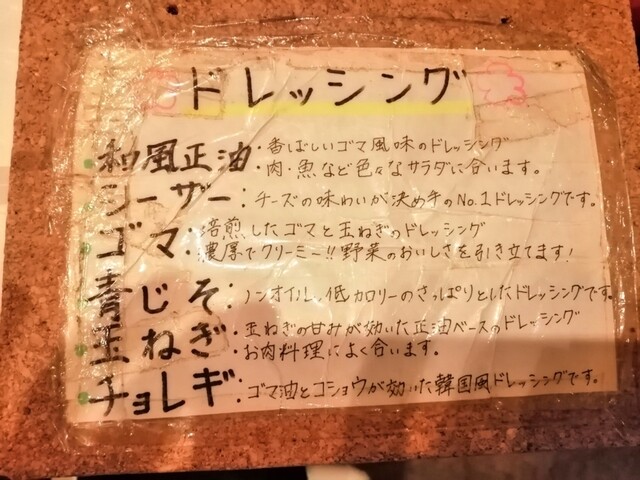 ドレッシング
和風正油・香ばしいゴマ風味のドレッシング
・肉・魚など色々なサラダに合います。
シーザー:チーズの味わいが決め手のNo.1ドレッシングです。
ゴマ:焙煎したゴマと玉ねぎのドレッシング
濃厚でクリーミー!!野菜のおいしさを引き立てます!
青じそ:ノンオイル、低カロリーのさっぱりとしたドレッシングです。
玉ねぎ・玉ねぎの甘みが効いた正油ベースのドレッシング
・お肉料理によく合います。
チョレギ:ゴマ油とコショウが効いた韓国風ドレッシングです。